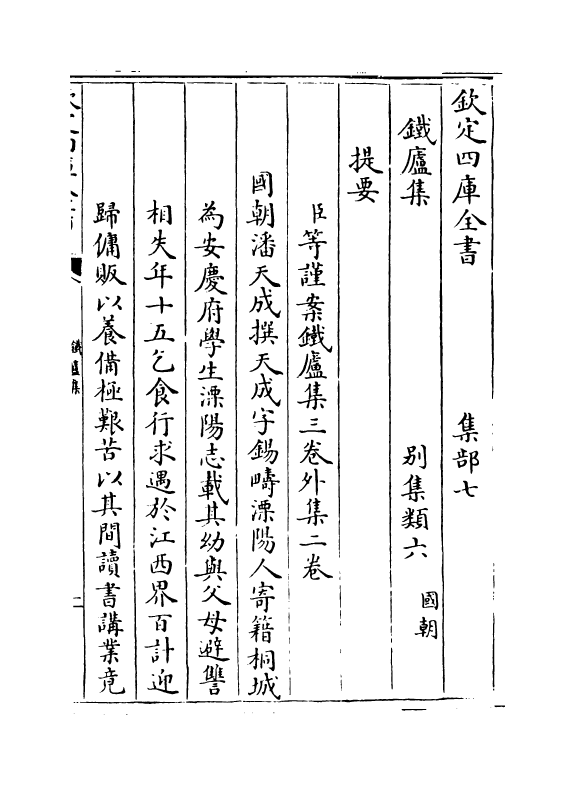 欽定四庫全書 集部七
鐵廬集 别集類六 國朝
提要
臣等謹案鐵廬集三卷外集二卷
國朝潘天成撰天成字錫疇溧陽人寄籍桐城
為安慶府學生溧陽志載其幼與父母避讐
相失年十五乞食行求遇於江西界百計迎
歸傭販以養備極艱苦以其間讀書講業竟
鐵廬集